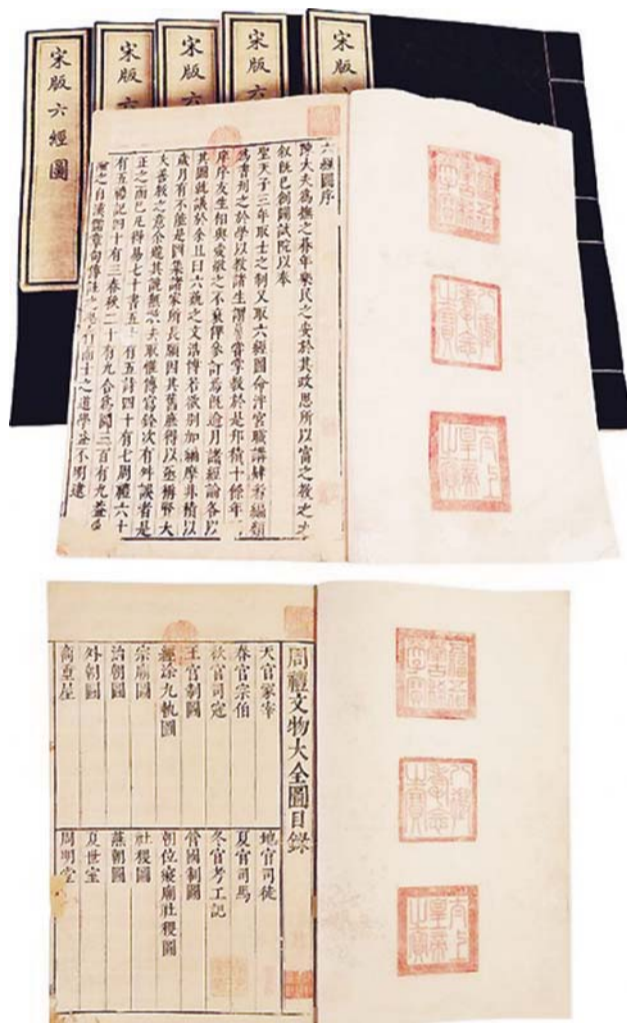 宋版六經圖
宋版六
宋版六
宋版六
宋版
八徵耄念之寶
太上皇帝之寶
六經圖序
陳大夫為撫之暮年樂民之安於其政思所以富之教之
叙既已創闢試院以奉
聖天子三年取士之制又取六經圖命泮宮職講肄者編類
為書刊之於學以教諸生謂嘗掌教於是邦積十餘年
庠序友生相與愛敬之不衰俾參訂焉既逾月諸經論各以
其圖就議於余且曰六藝之文浩博若欲別加編摩非積以
歲月有不能是四集諸家所長願因其舊庶得以亟稱賢大
夫善教之意余韙其說無去取惟傳寫銓次有舛誤者是
正之而已凡得易七十書五十有五詩四十有七周禮六十
有五禮記四十有三春秋二十有九合為圖三百有九蓋嘗
之自漢儒章句傳註之學行而士之道學益不明逮
八徵耄念之寶
太上皇帝之寶
周禮文物大全圖目錄
天官冢宰
地官司徒
春官宗伯
夏官司馬
秋官司寇
冬官考工記
王官制圖
營國制圖
經涂九軌圖
朝位寢廟社稷圖
宗廟圖
社稷圖
治朝圖
燕朝圖
外朝圖
夏世室
商重屋
周明堂